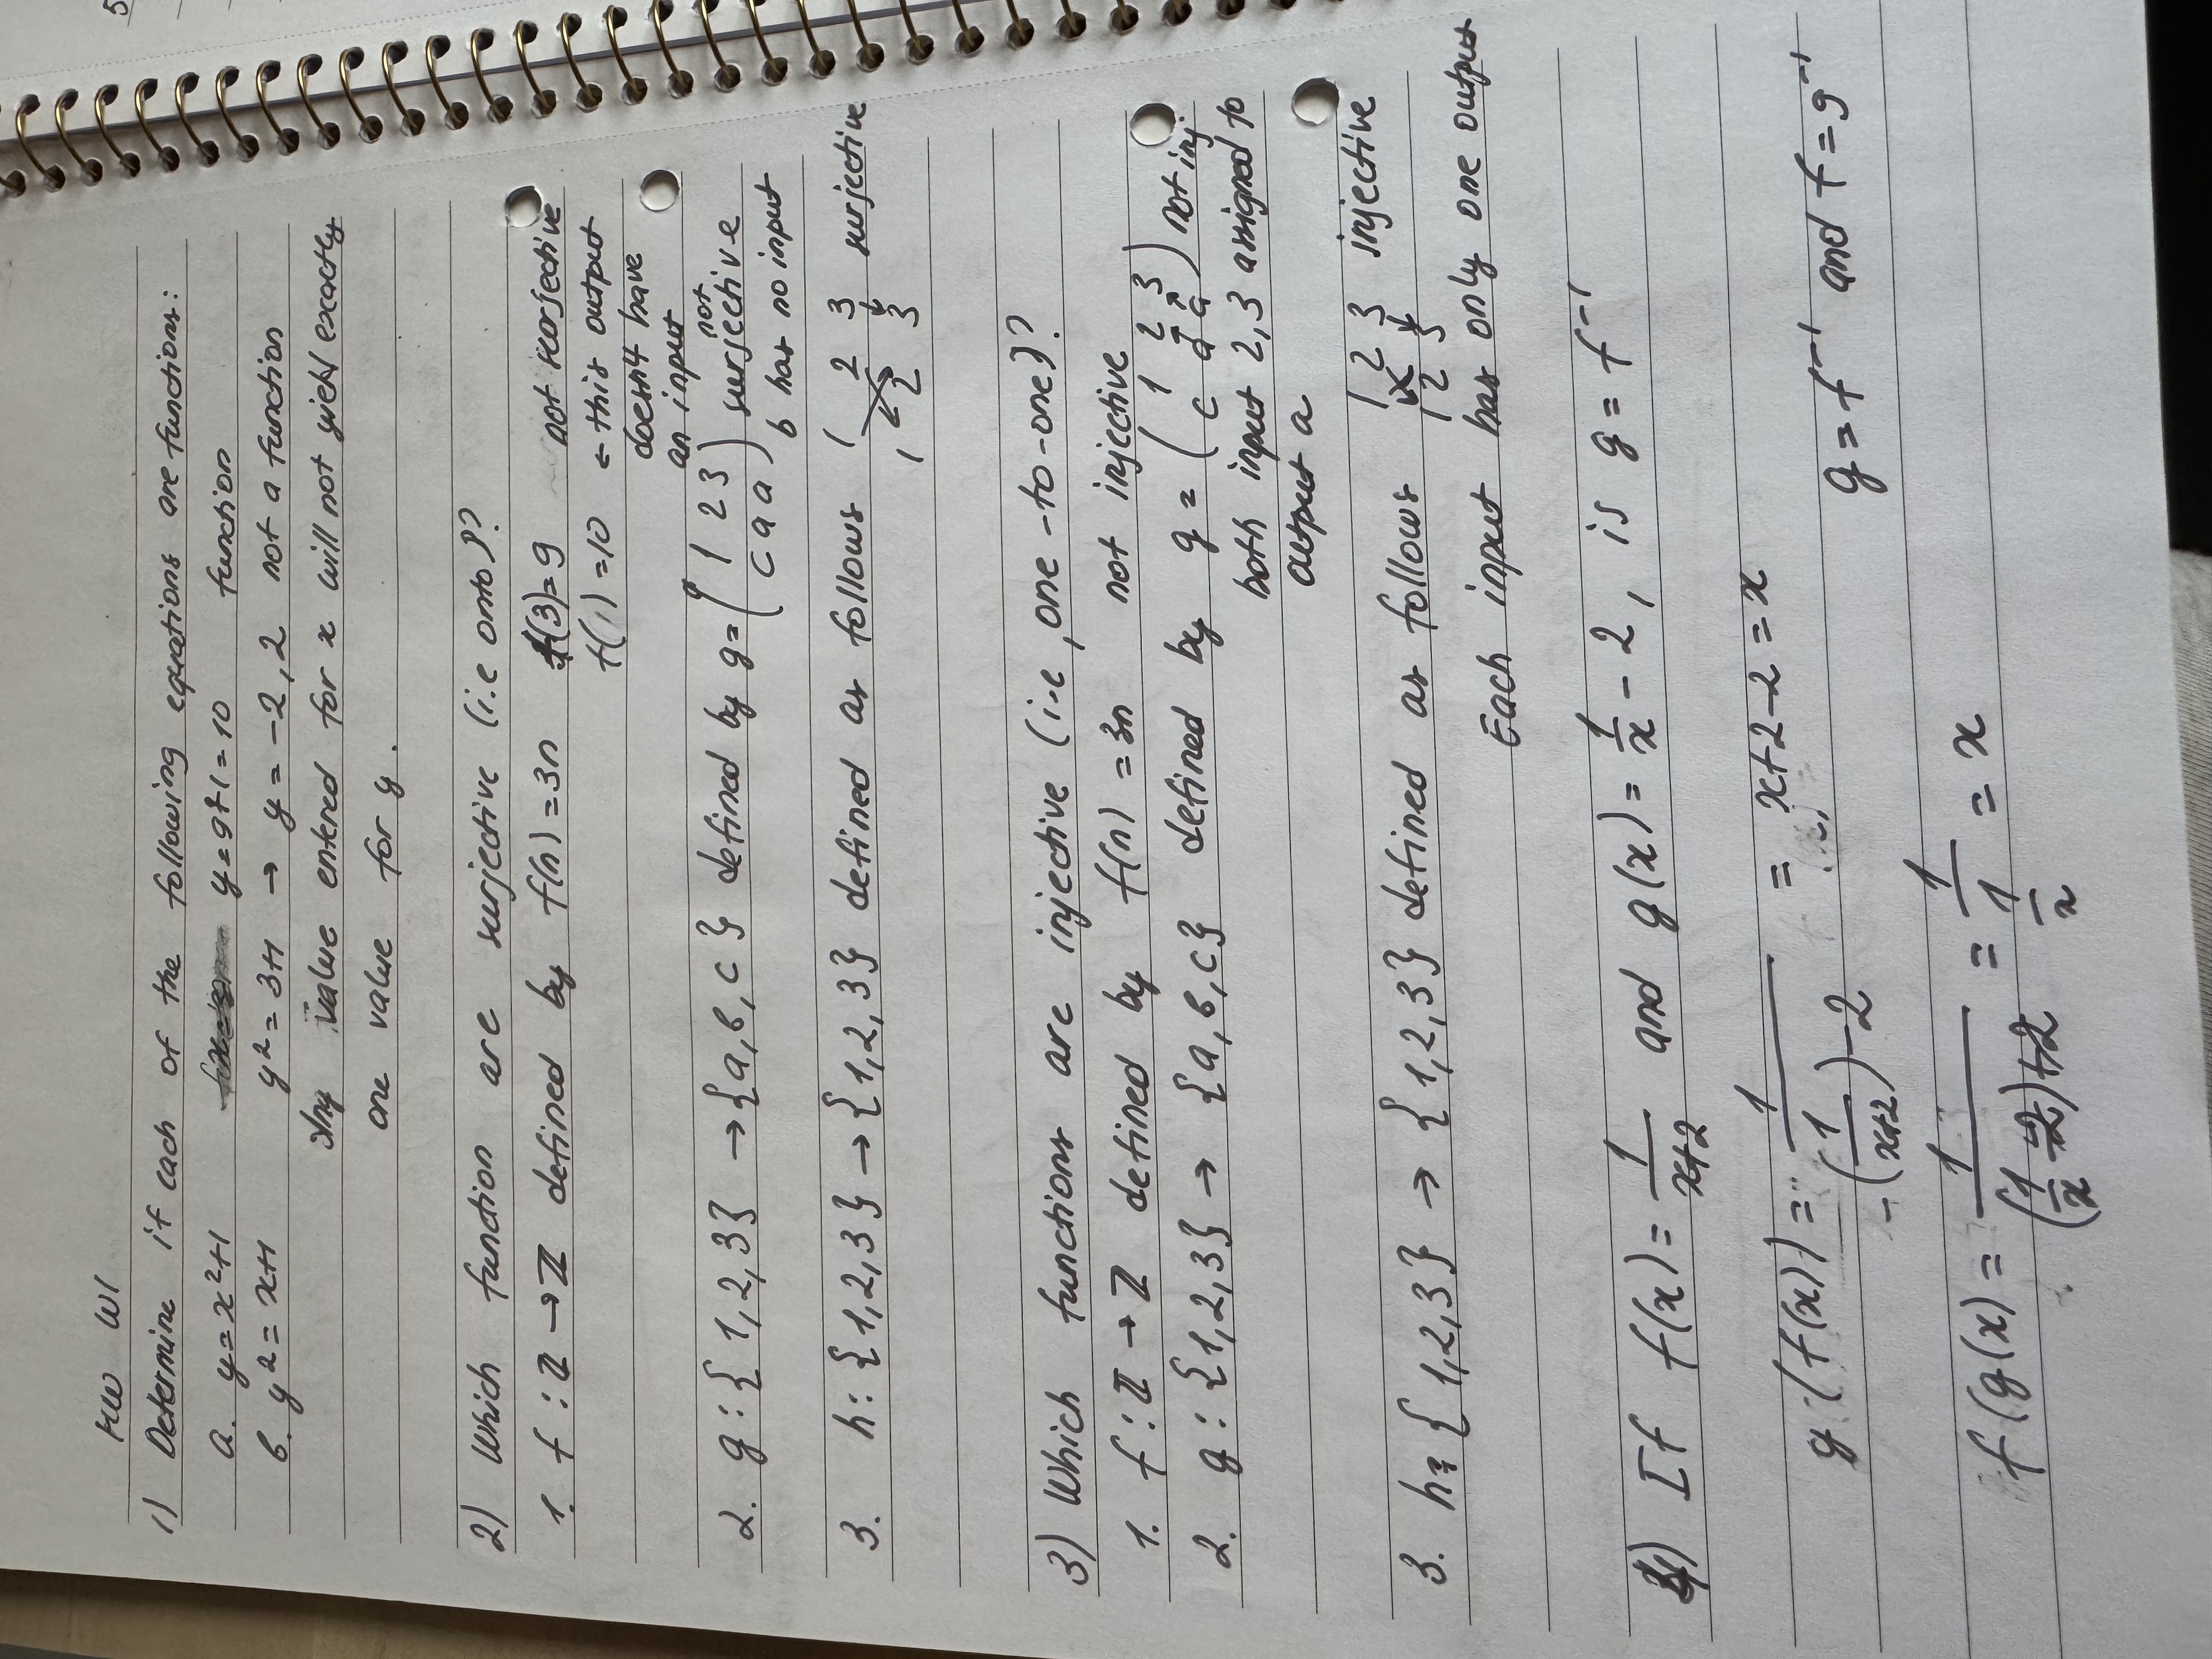 HW W1
1) Determine if each of the following equations are functions:
a. y=x²+1 y=9+1=10 function
b. y²=x+1 y²=3+1 → y=-2,2 not a function
Any value entered for x will not yield exactly
one value for y.
2) Which function are surjective (i.e onto)?
1. f:ℤ→ℤ defined by f(n)=3n f(3)=9 not surjective
f( )=10 ← this output
doesn't have
an input
2. g:{1,2,3} →{a,b,c} defined by g=(1 2 3 not
c a a) surjective
b has no input
3. h:{1,2,3}→{1,2,3} defined as follows 1 2 3 surjective
1 2 3
3) Which functions are injective (i.e, one-to-one)?
1. f:ℤ→ℤ defined by f(n)=3n not injective
2. g:{1,2,3}→ {a,b,c} defined by g=(1 2 3
c a a) not inj.
both input 2,3 assigned to
output a
3. h:{1,2,3} → {1,2,3} defined as follows 1 2 3 injective
1 2 3
Each input has only one output
4) If f(x)=1/(x+2) and g(x)=1/x-2, is g=f⁻¹
g(f(x))=1/(1/(x+2))-2 = x+2-2=x
g=f⁻¹ and f=g⁻¹
f(g(x)=1/((1/x-2)+2)=1/(1/x)=x
5